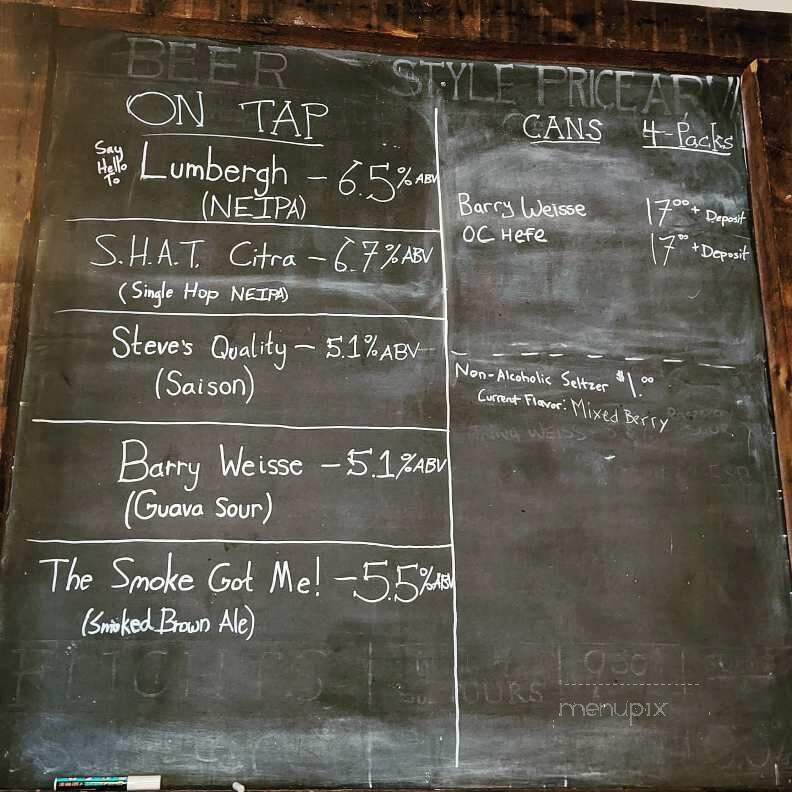 BEER STYLE PRICE ABV
ON TAP
Say
Hello
To
Lumbergh - 6.5% ABV
(NEIPA)
S.H.A.T. Citra - 6.7% ABV
(Single Hop NEIPA)
Steve's Quality - 5.1% ABV
(Saison)
Barry Weisse - 5.1% ABV
(Guava Sour)
The Smoke Got Me! - 5.5% ABV
(Smoked Brown Ale)
CANS 4-Packs
Barry Weisse 17.00 + Deposit
OC Hefe 17.00 + Deposit
Non-Alcoholic Seltzer $1.00
Current Flavor: Mixed Berry
menupix